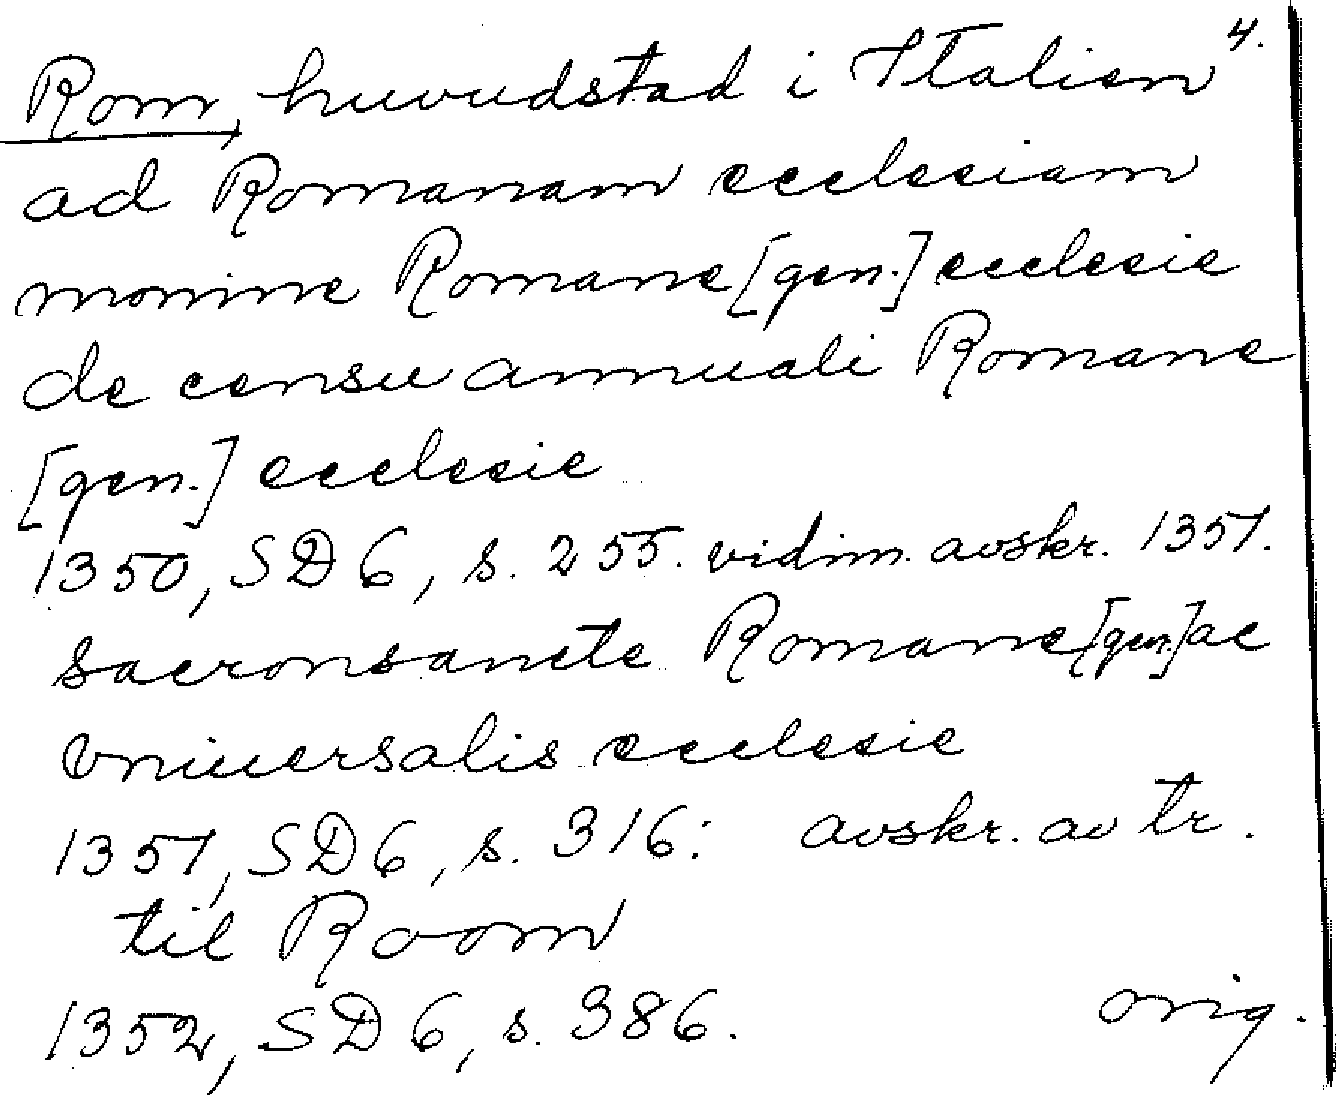 4.
Rom, huvudstad i Italien
ad Romanam ecclesiam
nomine Romane [gen.] ecclesie
de censu annuali Romane
[gen.] ecclesie
1350, SD 6, s. 255. vidim. avskr. 1351.
sacronsancte Romane [gen.] ac
vniuersalis ecclesie
1351, SD 6, s. 316: avskr. av tr.
til Room
1352, SD 6, s. 386. orig.